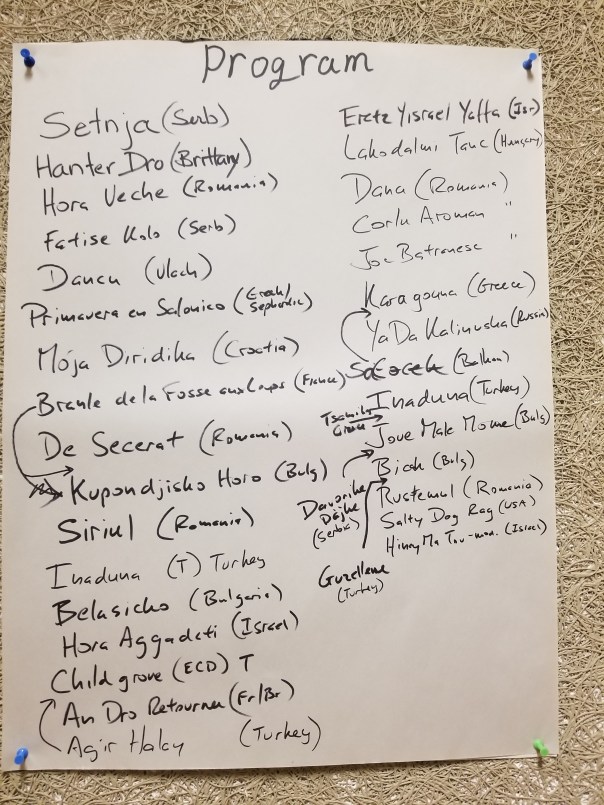 Program
Setnja (Serb)
Hanter Dro (Brittany)
Hora Veche (Romania)
Fatise Kolo (Serb)
Dancu (Vlach)
Primavera en Salonico (Greek/
Sephardic)
Moja Diridika (Croatia)
Branle de la Fosse aux Loups (France)
De Secerat (Romania)
Kupondjisko Horo (Bulg)
Siriul (Romania)
Inaduna (T) Turkey
Belasicko (Bulgaria)
Hora Aggadati (Israel)
Childgrove (ECD) T
An Dro Retourner (Fr/Br)
Agir Halay (Turkey)
Eretz Yisrael Yaffa (Isr)
Lakodalmi Tanc (Hungary)
Dana (Romania)
Corlu Aroman "
Joc Batranesc "
Karagouna (Greece)
YaDa Kalinuska (Russia)
(Balkan)
Inaduna (Turkey)
Jove Male Mome (Bulg)
Bicak (Bulg)
Rustemul (Romania)
Salty Dog Rag (USA)
Hinay Ma Tov (Israel)
Davorike
Dajke
(Serbia)
Guzelleme
(Turkey)